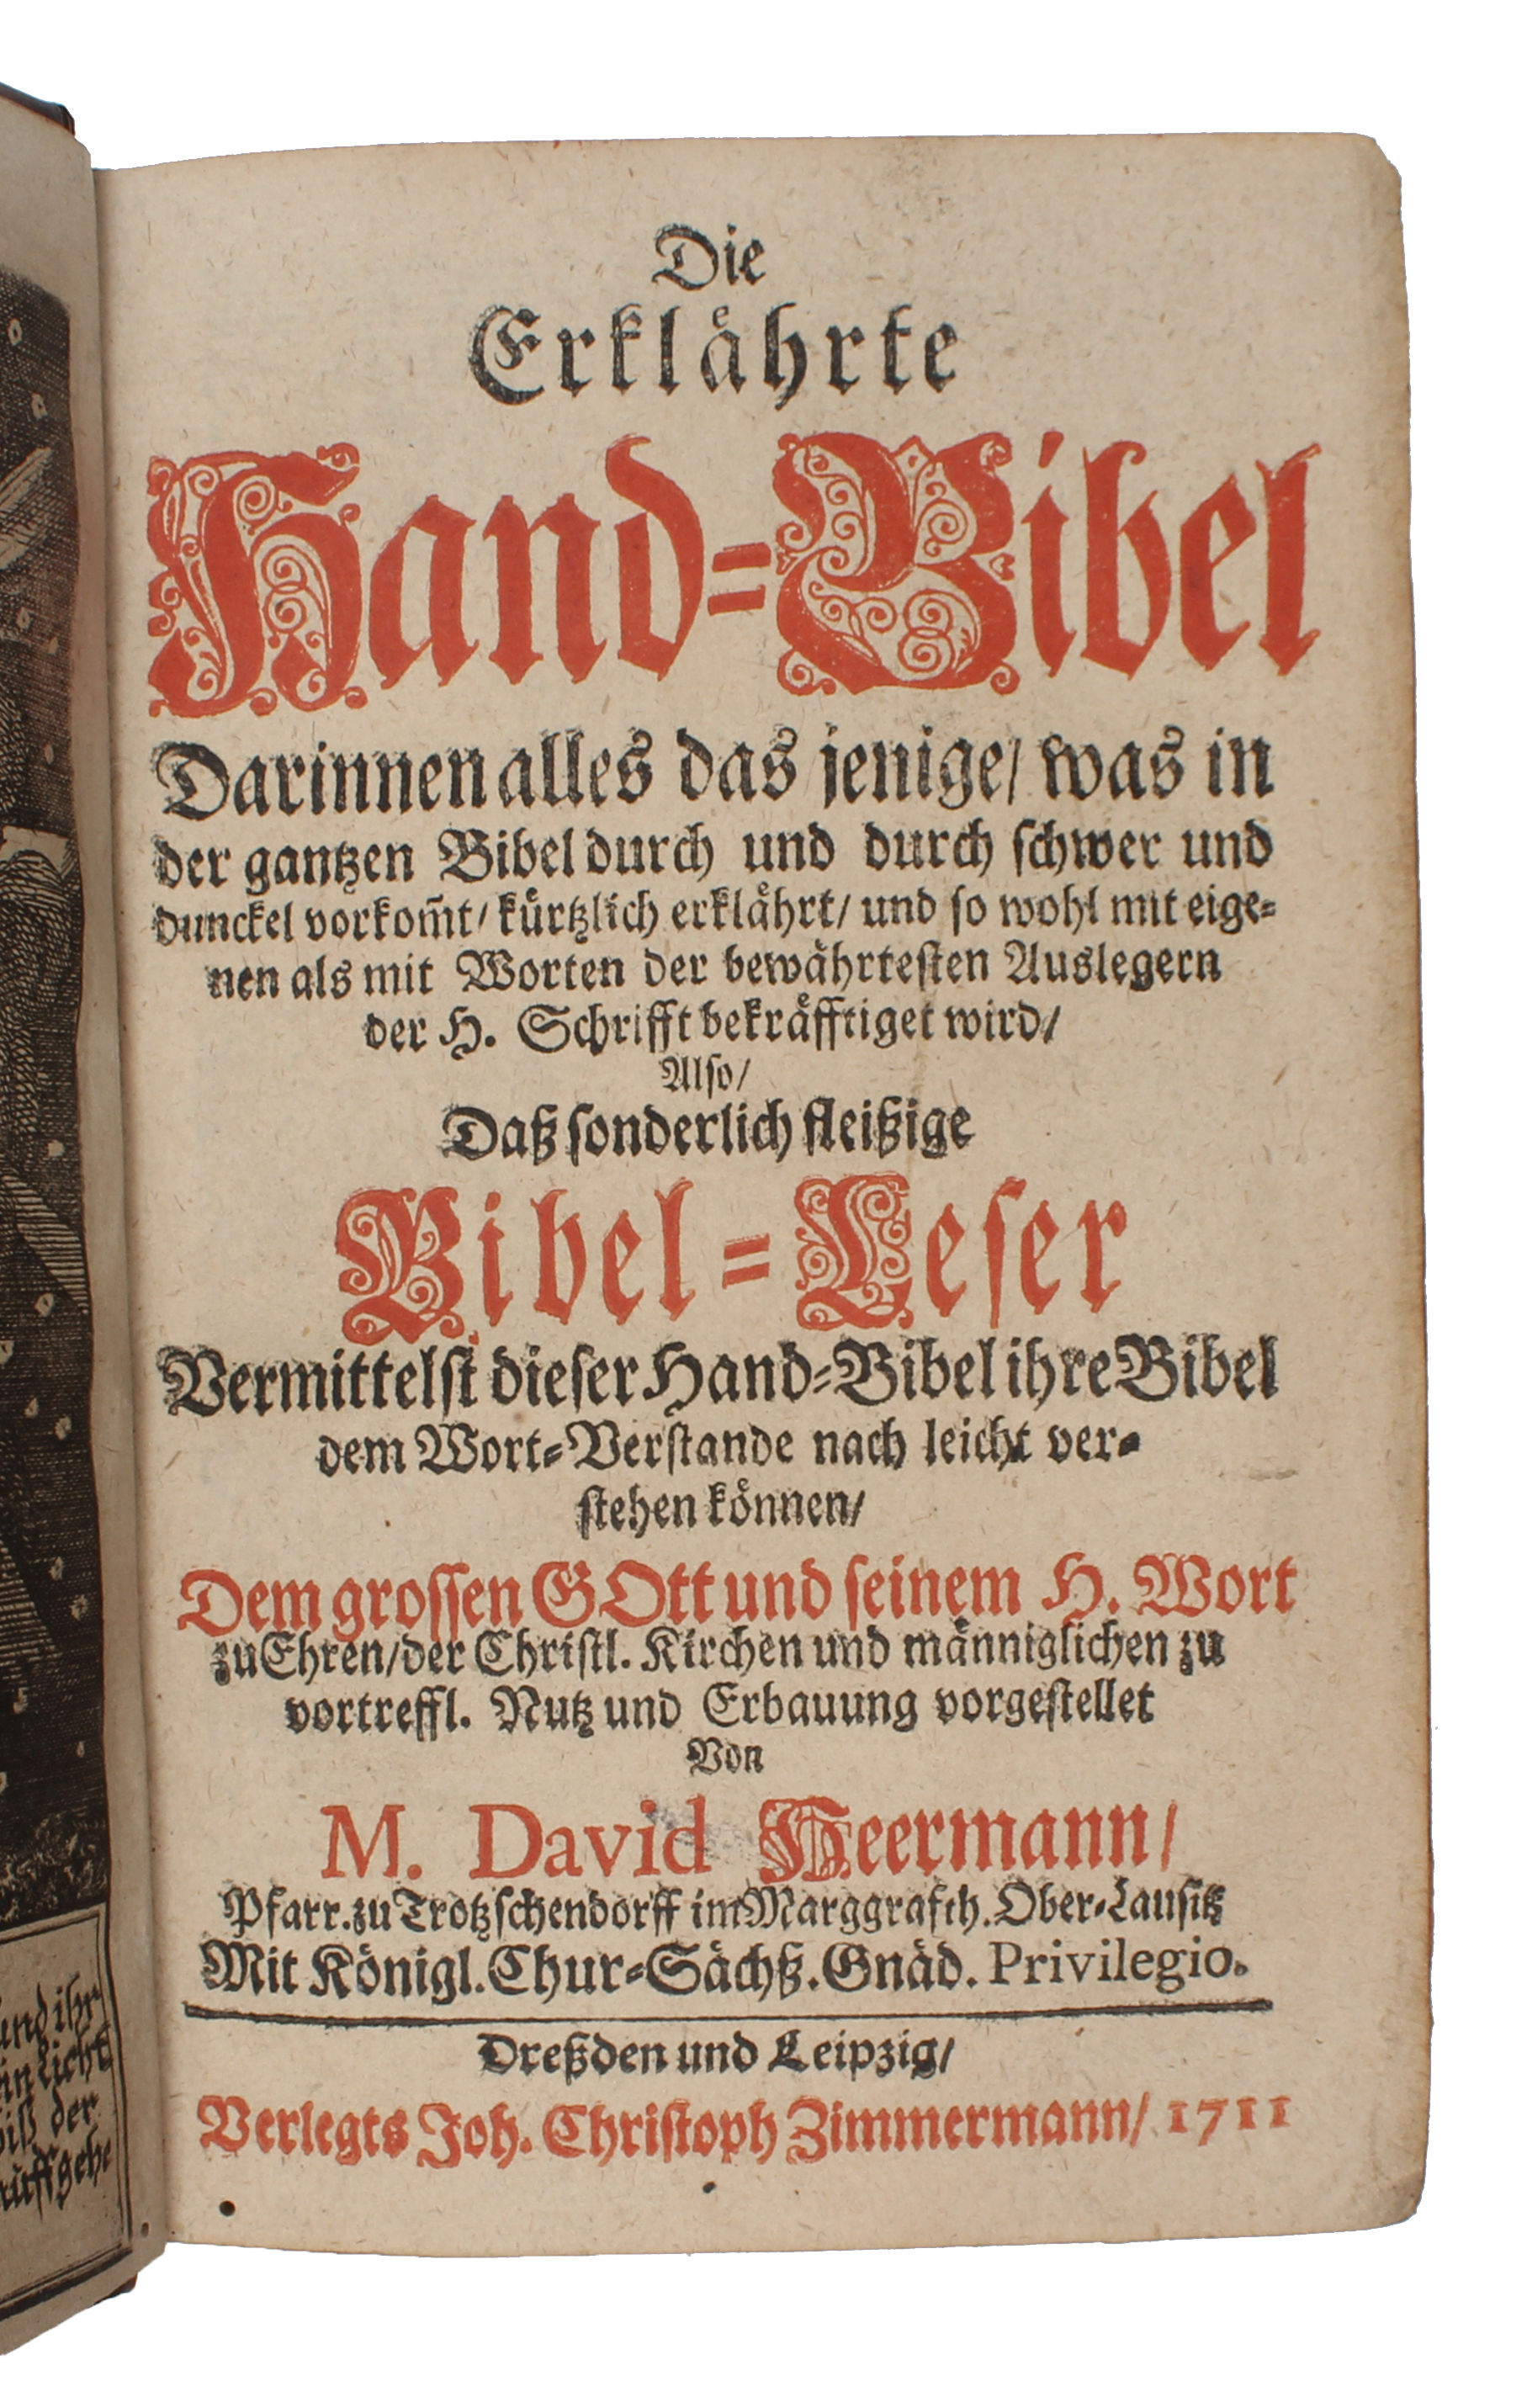 Die
Erklährte
Hand=Bibel
Darinnen alles das jenige/ was in
der gantzen Bibel durch und durch schwer und
dunckel vorkom̃t/ kürtzlich erklährt/ und so wohl mit eige=
nen als mit Worten der bewährtesten Auslegern
der H. Schrifft bekräfftiget wird/
Also/
Daß sonderlich fleißige
Bibel=Leser
Vermittelst dieser Hand=Bibel ihre Bibel
dem Wort=Verstande nach leicht ver=
stehen können/
Dem grossen GOtt und seinem H. Wort
zu Ehren/ der Christl. Kirchen und männiglichen zu
vortreffl. Nutz und Erbauung vorgestellet
Von
M. David Heermann/
Pfarr. zu Trotzschendorff im Marggrafth. Ober=Lausitz
Mit Königl. Chur=Sächß. Gnäd. Privilegio.
Dreßden und Leipzig/
Verlegts Joh. Christoph Zimmermann/ 1711
ihr
Licht
der